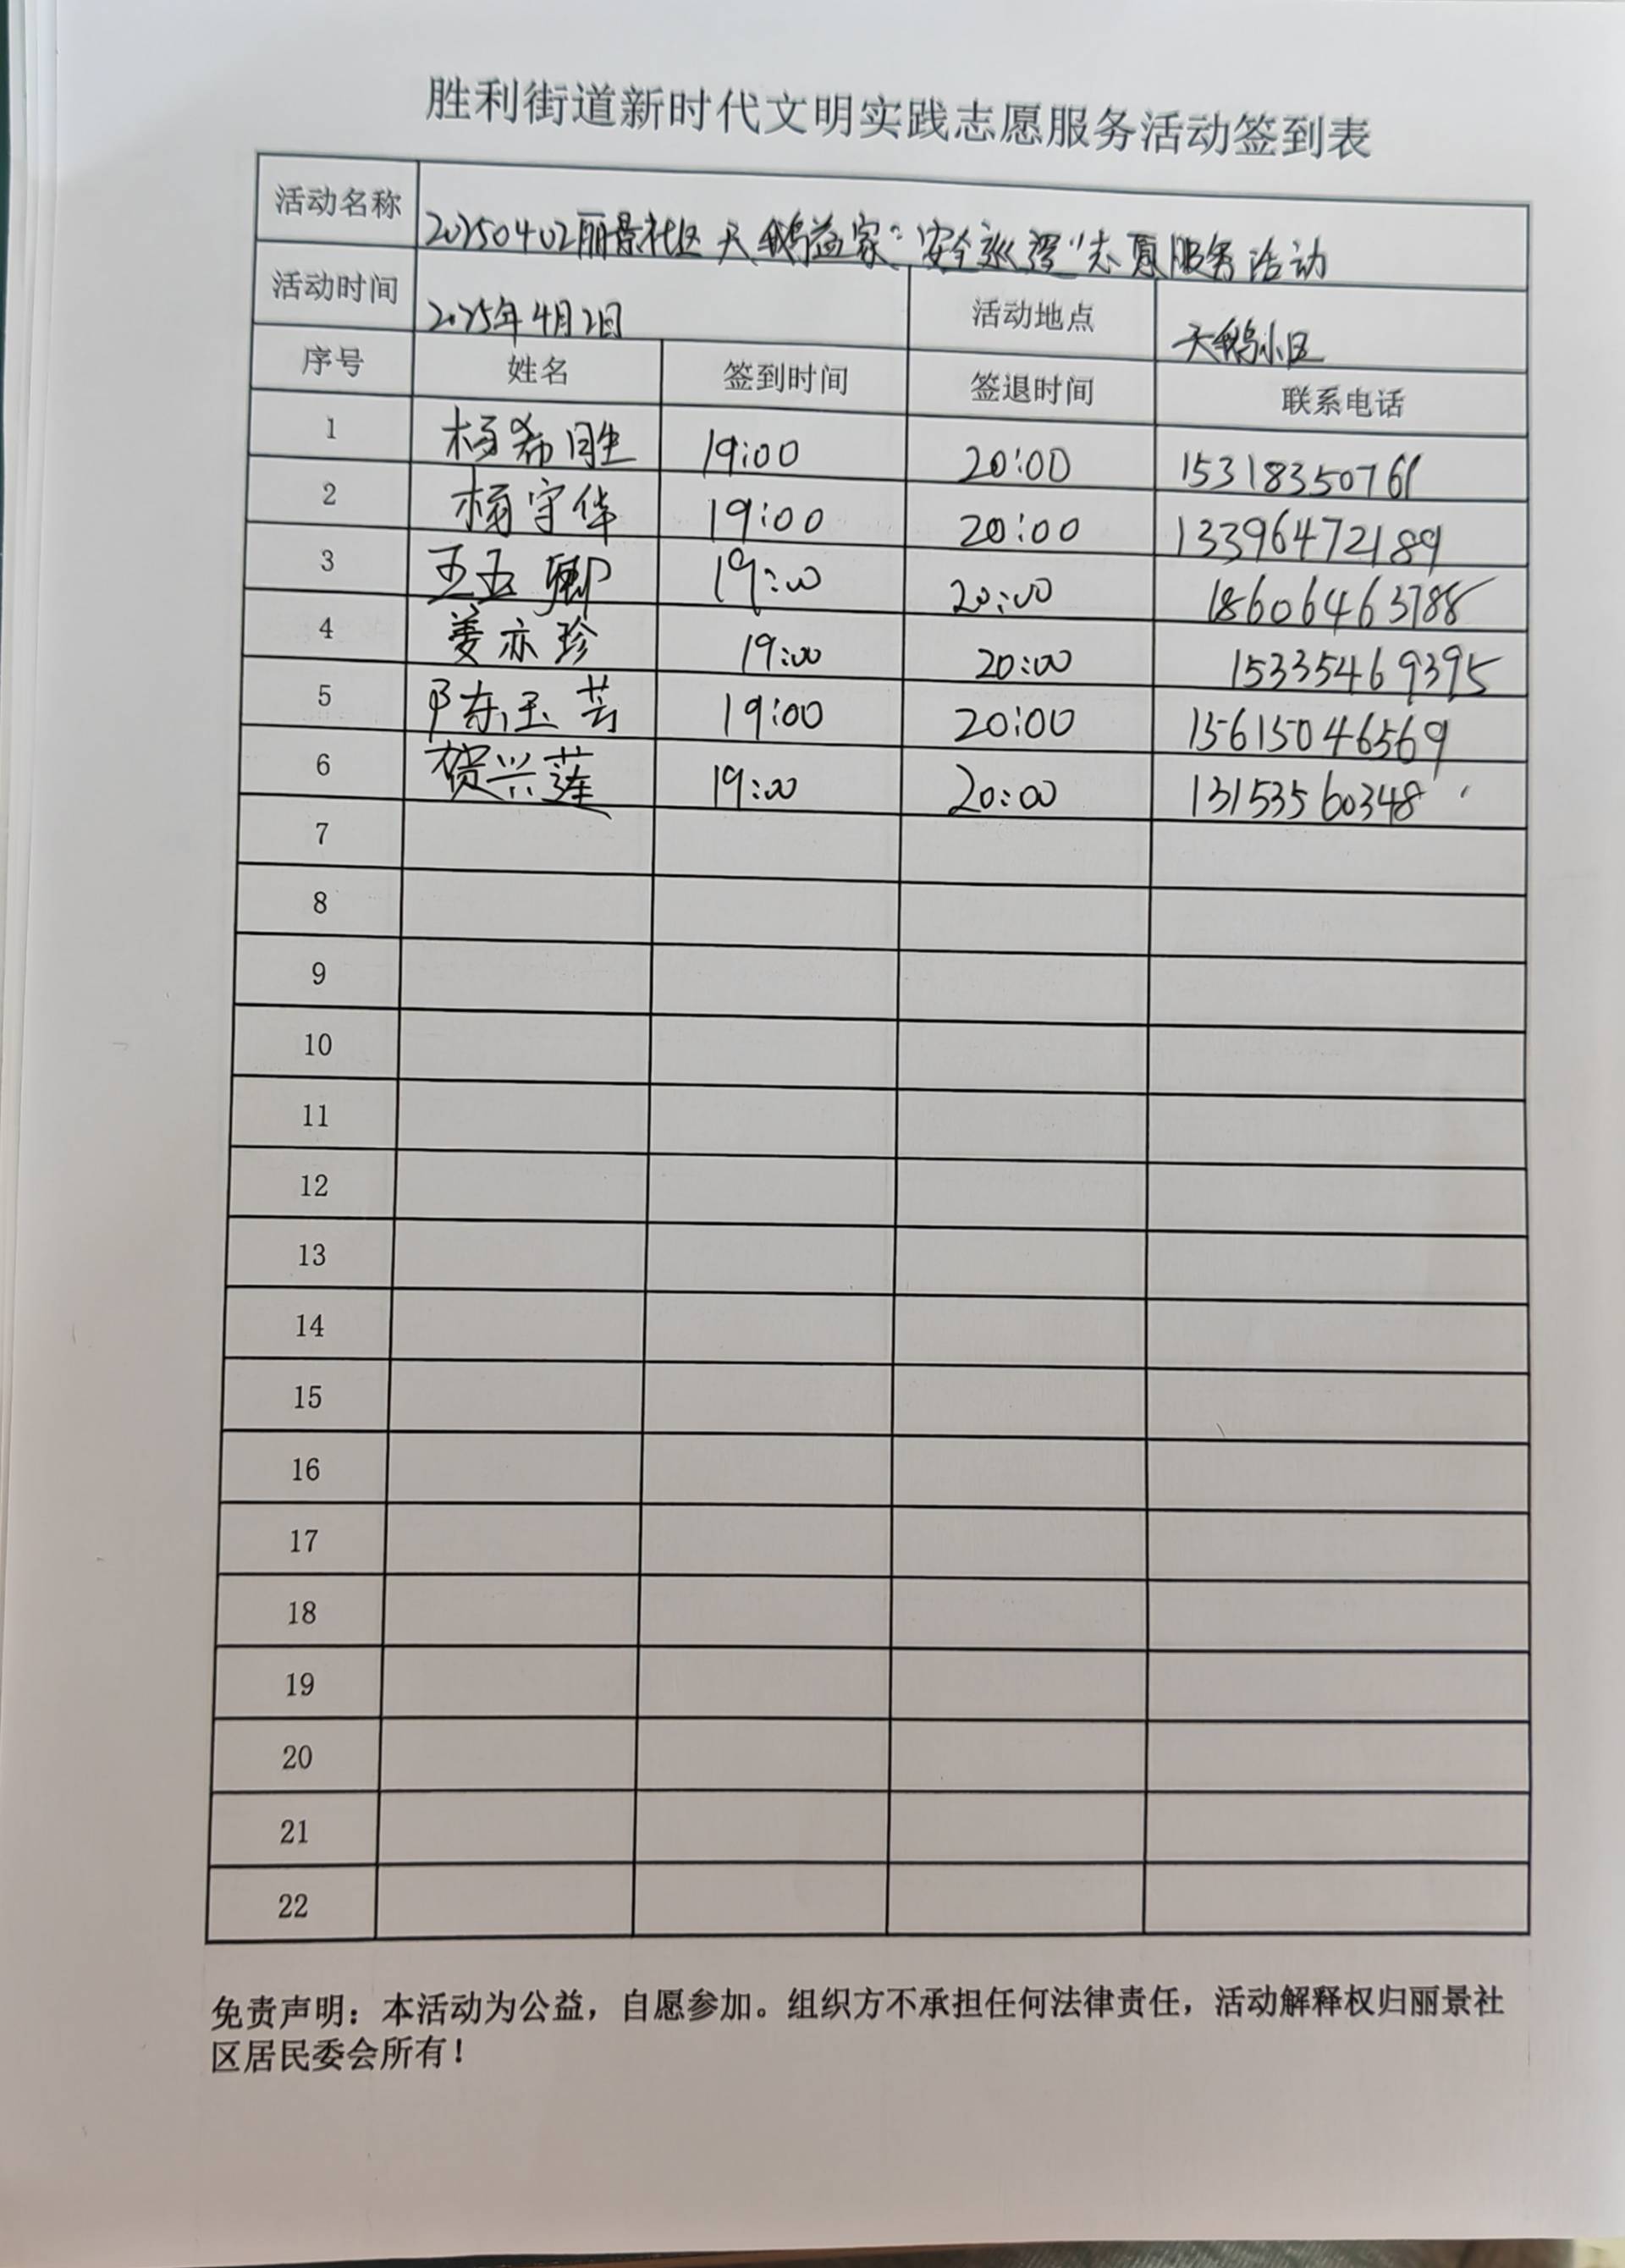 胜利街道新时代文明实践志愿服务活动签到表
活动名称 20250402丽景社区天鹅益家“安全巡逻”志愿服务活动
活动时间 2025年4月2日 活动地点 天鹅小区
序号 姓名 签到时间 签退时间 联系电话
1 杨希胜 19:00 20:00 15318350761
2 杨守华 19:00 20:00 13396472189
3 王玉卿 19:00 20:00 18606463788
4 姜亦珍 19:00 20:00 15335469395
5 陈玉芸 19:00 20:00 15615046569
6 贺兴莲 19:00 20:00 13153560348
7
8
9
10
11
12
13
14
15
16
17
18
19
20
21
22
免责声明：本活动为公益，自愿参加。组织方不承担任何法律责任，活动解释权归丽景社
区居民委会所有！